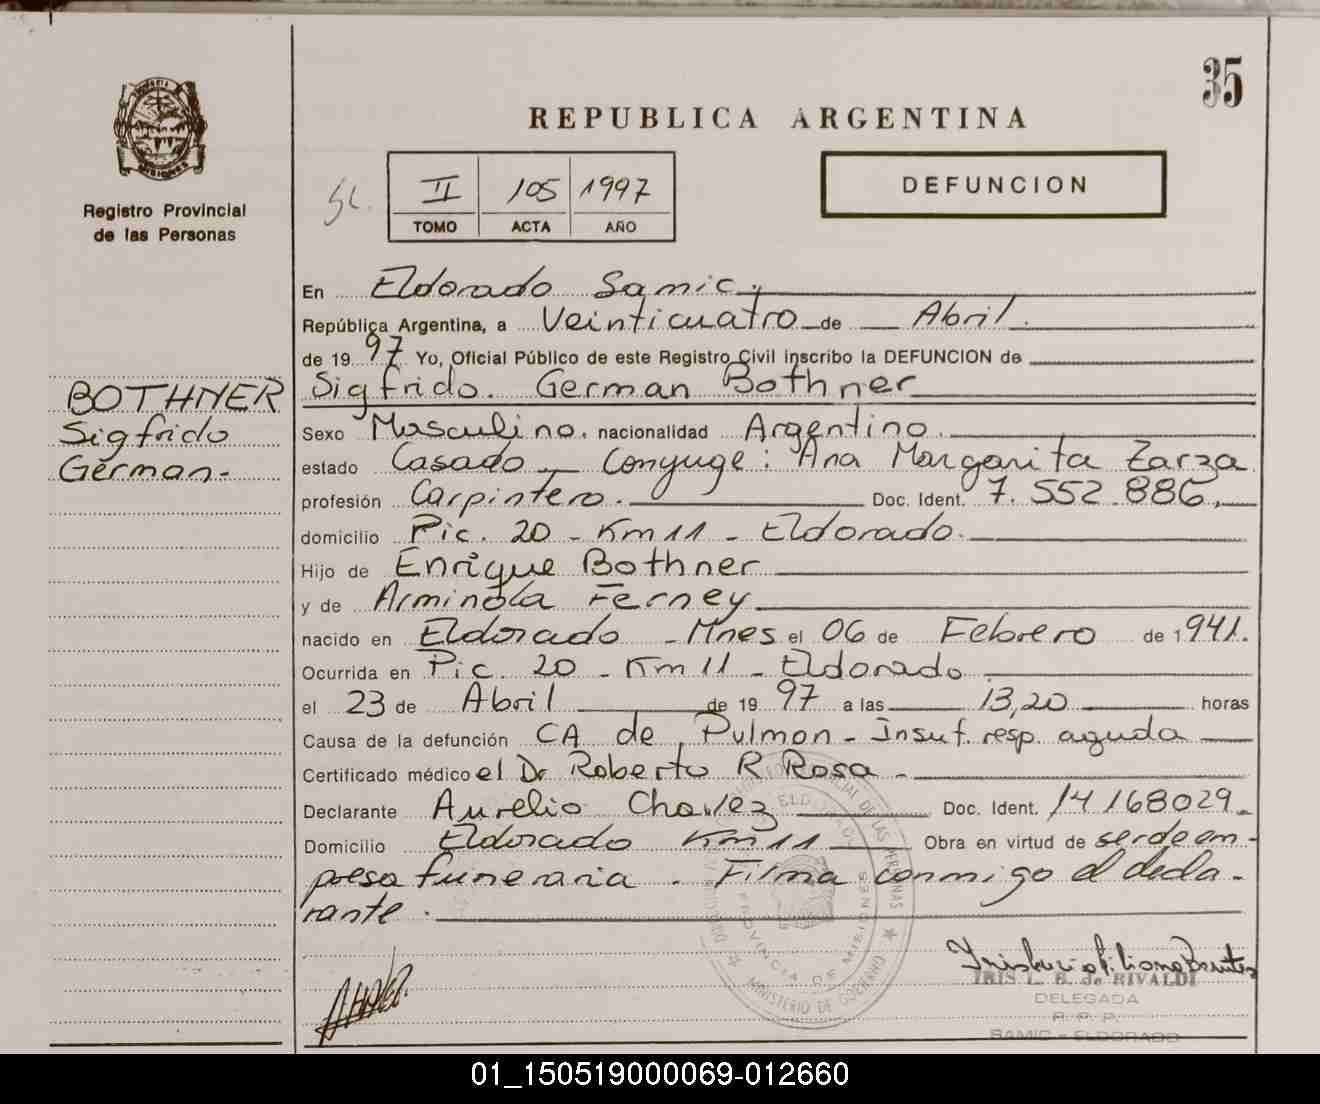 35
REPUBLICA ARGENTINA
MISIONES
Registro Provincial
de las Personas
II 105 1997
TOMO ACTA AÑO
DEFUNCION
En Eldorado Samic,
República Argentina, a Veinticuatro de Abril.
de 1997 Yo, Oficial Público de este Registro Civil inscribo la DEFUNCION de
Sigfrido. German Bothner
BOTHNER
Sigfrido
German-
Sexo Masculino. nacionalidad Argentino.
estado Casado - Conyuge: Ana Margarita Zarza
profesión Carpintero. Doc. Ident. 7.552.886,
domicilio Pic. 20 - Km 11 - Eldorado.
Hijo de Enrique Bothner
y de Arminda Ferney
nacido en Eldorado - Mnes el 06 de Febrero de 1941.
Ocurrida en Pic. 20 - Km 11 - Eldorado
el 23 de Abril de 1997 a las 13,20 horas
Causa de la defunción CA de Pulmon - Insuf. resp. aguda
Certificado médico el Dr Roberto R Rosa -
Declarante Aurelio Chavez Doc. Ident. 14168029-
Domicilio Eldorado Km 11 Obra en virtud de ser de em-
presa funeraria - Firma conmigo el decla-
rante.
IRIS L. B. de RIVALDI
DELEGADA
R. P. P.
SAMIC - ELDORADO
PROVINCIA DE MISIONES
MINISTERIO DE GOBIERNO
01_150519000069-012660